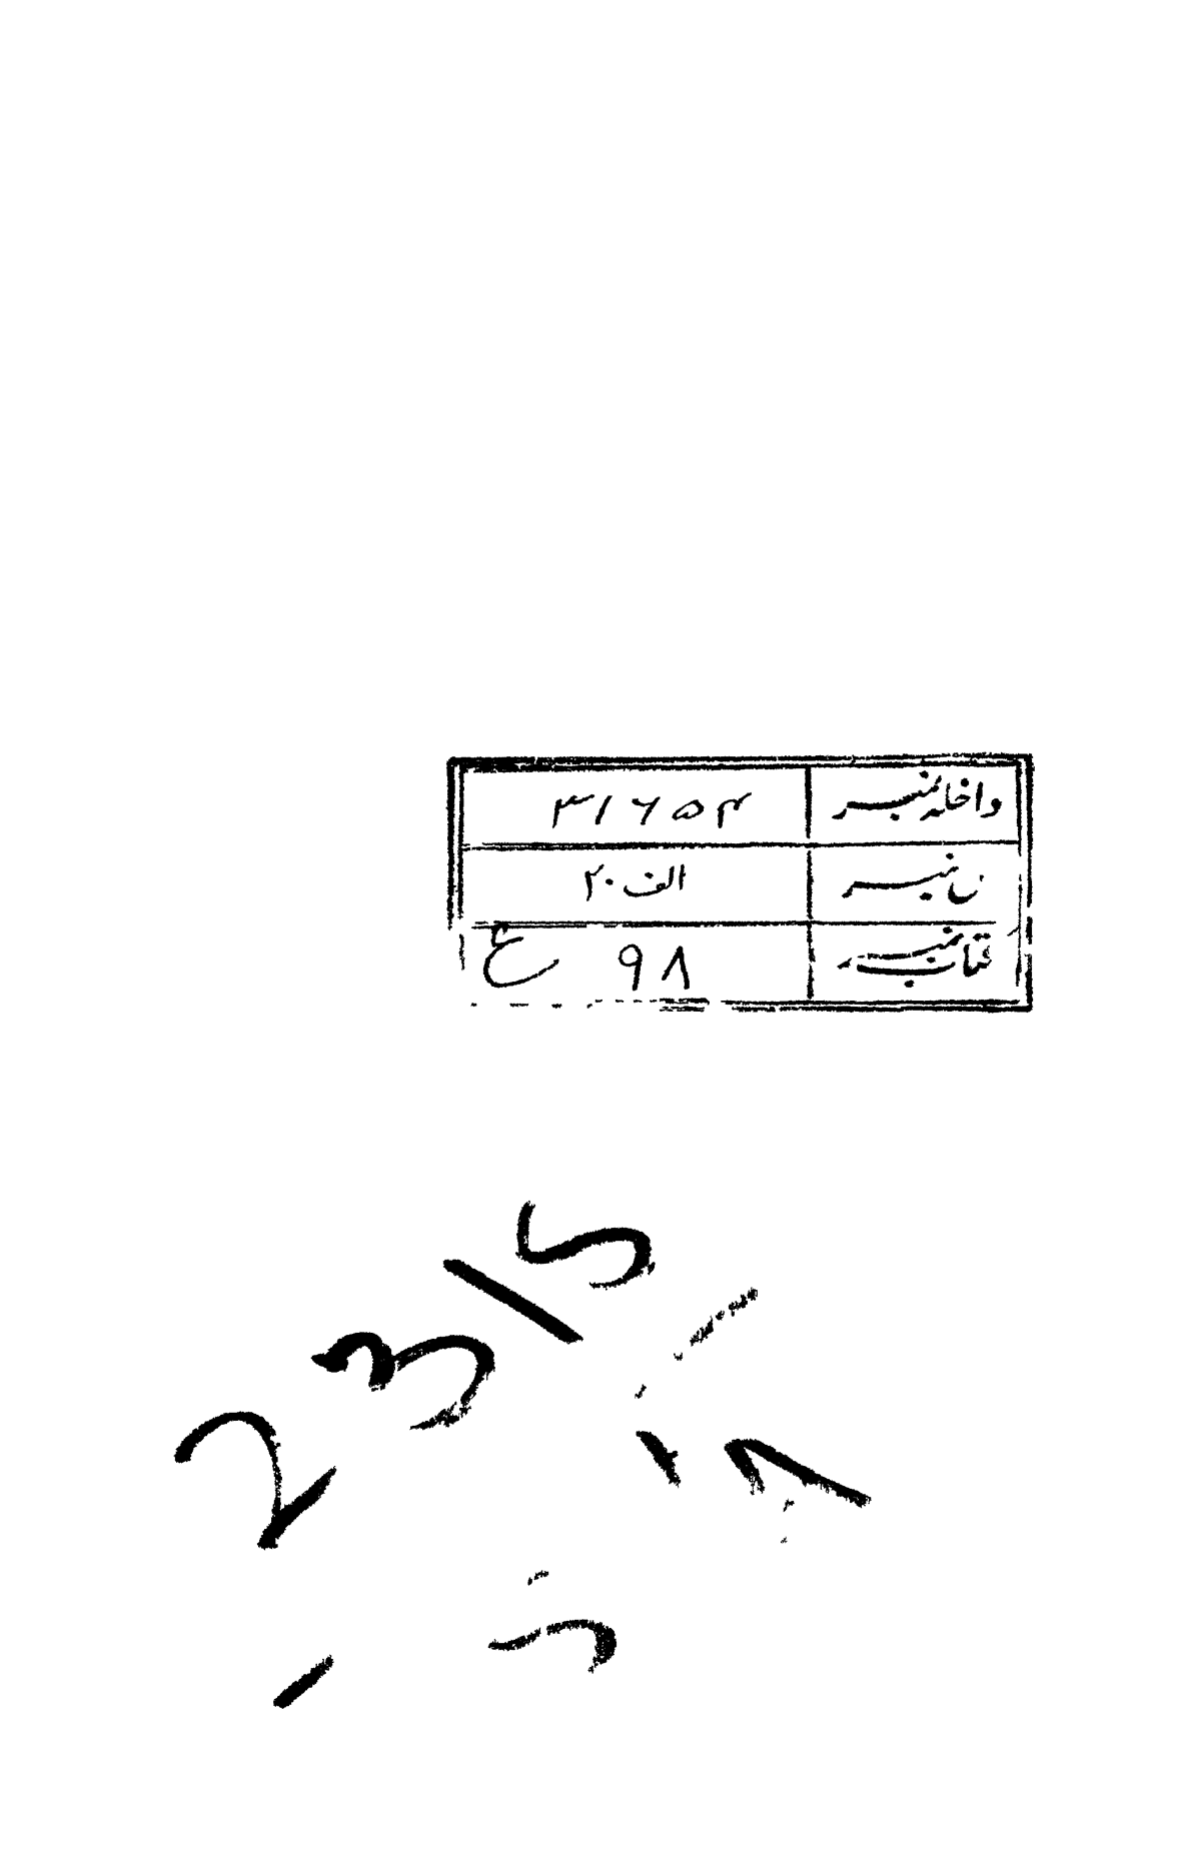 داخلہ نمبر ۳۱۶۵۴
ن نمبر الف ۲۰
کتاب نمبر ۹۸ ع
2315